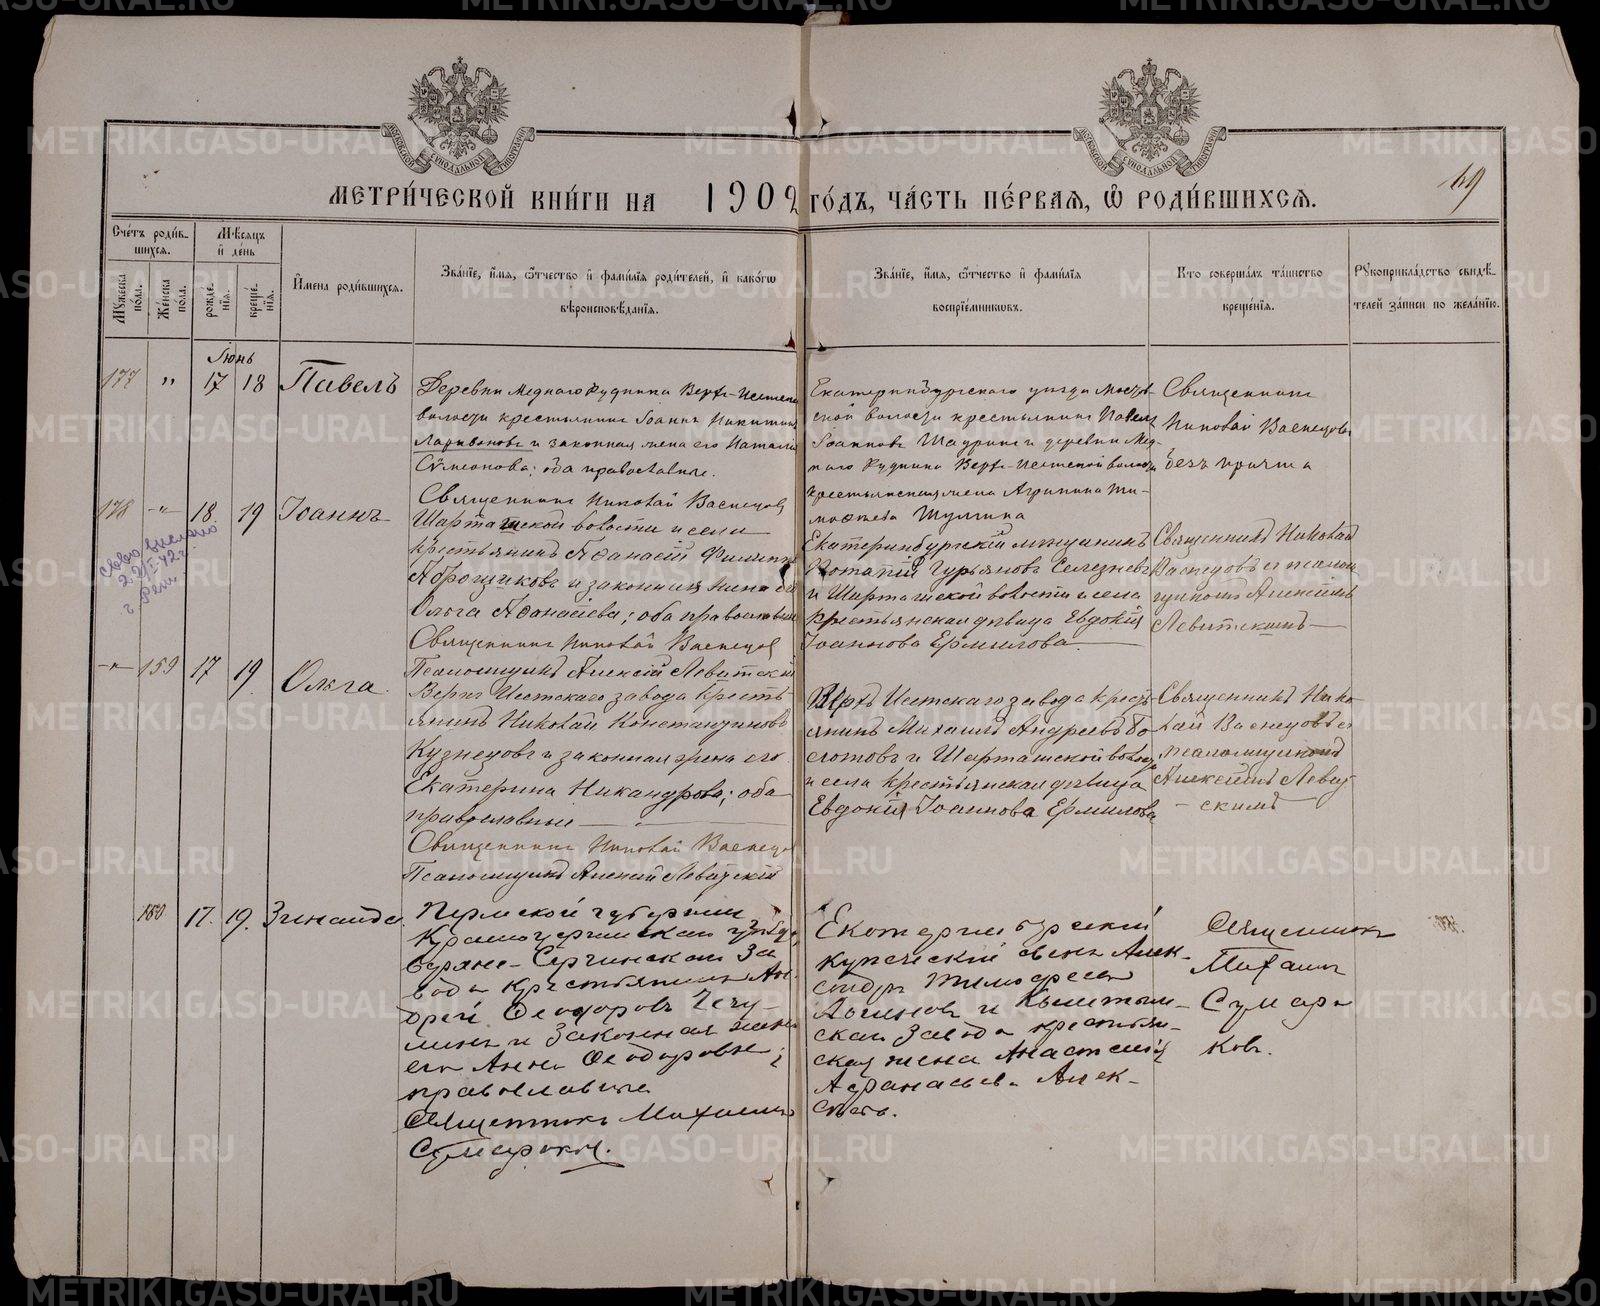 МЕТРИ́ЧЕСКОЙ КНИ́ГИ НА 1902 ГО́ДЪ, ЧА́СТЬ ПЕ́РВАЯ, Ѡ РОДИ́ВШИХСЯ.
69
Сче́тъ роди́в-
шихся.
Мѣсяцъ
и де́нь
Му́жеска по́ла.
Же́нска по́ла.
рожде́-
нїя.
креще́-
нїя.
И҆мена роди́вшихся.
Зва́нїе, и҆́мя, ѻ҆́тчество и҆ фами́лїя роди́телей, и҆ како́гѡ
вѣроисповѣ́данїя.
Зва́нїе, и҆́мя, ѻ҆́тчество и҆ фами́лїя
воспрїе́мниковъ.
Кто соверша́лъ та́инство
креще́нїя.
Рꙋкоприкла́дство свидѣ́-
телей за́писи по жела́нїю.
Іюнь
177 " 17 18 Павелъ
Деревни Меднаго Рудника Верхъ-Исетской
волости крестьянинъ Іоаннъ Никитинъ
Ларивоновъ и законная жена его Наталія
Сѵмеонова; оба православные.
Священникъ Николай Васнецовъ
Екатеринбургскаго уезда
ской волости крестьянинъ Павелъ
Іоанновъ Шадринъ и деревни Мед-
наго Рудника Верхъ-Исетской волости
крестьянская жена Агрипина Ти-
мофеева Шулгина
Священникъ
Николай Васнецовъ
безъ причта
178 -"- 18 19 Іоаннъ
Шарташской волости и села
крестьянинъ Аѳанасій Филипповъ
Аброщиковъ и законная жена его
Ольга Аѳанасіева; оба православные
Священникъ Николай Васнецовъ
Псаломщикъ Алексій Левитскій
Екатеринбургскій мещанинъ
Потапій Гурьяновъ Селезневъ
и Шарташской волости и села
крестьянская девица Евдокія
Іоаннова Ермилова
Священникъ Николай
Васнецовъ съ псалом
щикомъ Алексіемъ
Левитскимъ
-"- 159 17 19 Ольга
Верхъ Исетскаго завода кресть-
янинъ Николай Константиновъ
Кузнецовъ и законная жена его
Екатерина Никандрова; оба
православные
Священникъ Николай Васнецовъ
Псаломщикъ Алексій Левитскій
Верхъ Исетскаго завода кресть-
янинъ Михаилъ Андреевъ Бо
лотовъ и Шарташской волости
и села крестьянская девица
Евдокія Іоаннова Ермилова
Священникъ Нико-
лай Васнецовъ съ
псаломщикомъ
Алексіемъ Левит
- скимъ
160 17. 19. Зинаида
Пермской губерніи
Красноуфимскаго уезда,
Серчинскаго За
вода крестьянинъ Ан-
дрей Ѳеодоровъ
и законная жена
его Анна Ѳеодоровна;
православные
Священникъ Михаилъ
Сумароковъ.
Екатеринбургскій
купеческій сынъ Алек-
сандръ Тимофеевъ
Логиновъ и Кыштым-
скаго Завода крестьян-
ская жена Анастасія
Афанасьева Алек-
Священникъ
Михаилъ
Сумаро
ковъ.
METRIKI.GASO-URAL.RU